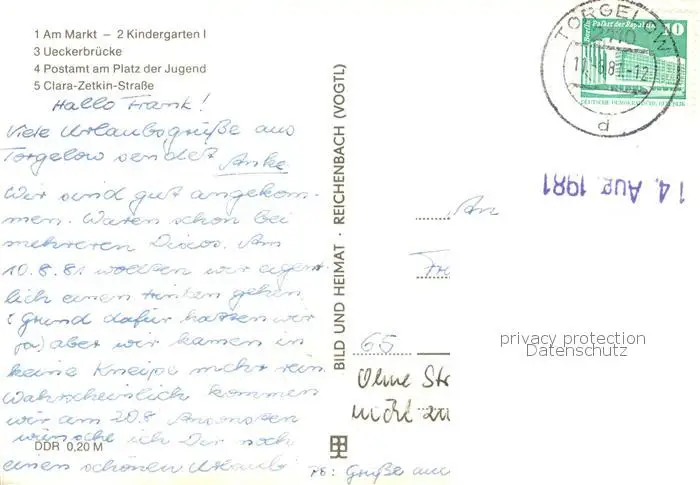 1 Am Markt – 2 Kindergarten I
3 Ueckerbrücke
4 Postamt am Platz der Jugend
5 Clara-Zetkin-Straße
Hallo Frank!
Viele Urlaubsgrüße aus
Torgelow sendet Anke
Wir sind gut angekom-
men. Waren schon bei
mehreren Discos. Am
10.8.81 wollten wir eigent-
lich einen trinken gehen.
(Grund dafür hatten wir
ja) aber wir kamen in
keine Kneipe mehr rein
Wahrscheinlich kommen
wir am 20.8 Ansonsten
wünsche ich Dir noch
einen schönen Urlaub
DDR 0,20 M
BILD UND HEIMAT · REICHENBACH (VOGTL)
TORGELOW
2110
d
Berlin, Palast der Republik
10
DEUTSCHE DEMOKRATISCHE REPUBLIK
14. Aug. 1981
An
65
Ohne
nicht
PS: Grüße
privacy protection
Datenschutz